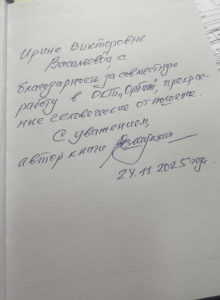 Ирине Викторовне
Васильевой, с
благодарностью за совместную
работу в
прекрас-
ные человеческие отношения.
С уважением,
автор книги
24.11.2025 года.